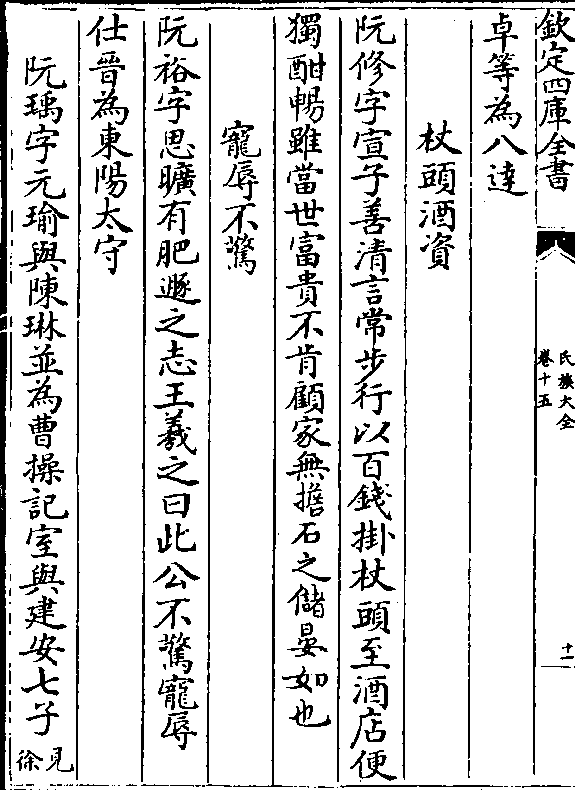 欽定四庫全書
氏族大全
卷十五
十一
卓等為八達
杖頭酒資
阮修字宣子善清言常步行以百錢掛杖頭至酒店便
獨酣暢雖當世富貴不肯顧家無擔石之儲晏如也
寵辱不驚
阮裕字思曠有肥遯之志王羲之曰此公不驚寵辱
仕晉為東陽太守
阮瑀字元瑜與陳琳並為曹操記室與建安七子見
徐